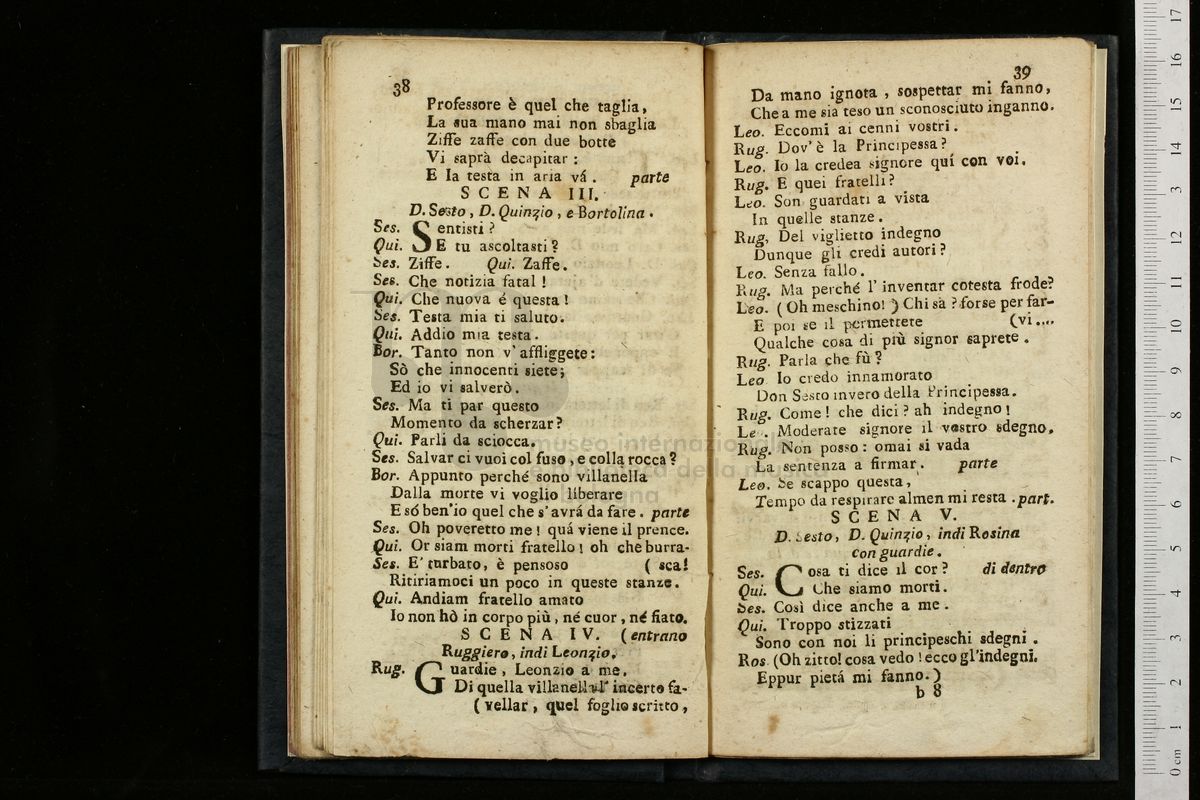 38
Professore è quel che taglia,
La sua mano mai non sbaglia
Ziffe zaffe con due botte
Vi saprà decapitar :
E la testa in aria vá . parte
SCENA III.
D. Sesto , D. Quinzio , e Bortolina .
Ses. Sentisti ?
Qui. E tu ascoltasti ?
Ses. Ziffe. Qui. Zaffe.
Ses. Che notizia fatal !
Qui. Che nuova é questa !
Ses. Testa mia ti saluto.
Qui. Addio mia testa.
Bor. Tanto non v'affliggete:
Sò che innocenti siete;
Ed io vi salverò.
Ses. Ma ti par questo
Momento da scherzar?
Qui. Parli da sciocca.
Ses. Salvar ci vuoi col fuso , e colla rocca ?
Bor. Appunto perché sono villanella
Dalla morte vi voglio liberare
E só ben'io quel che s'avrá da fare . parte
Ses. Oh poveretto me ! quá viene il prence.
Qui. Or siam morti fratello ! oh che burra-
Ses. E' turbato, è pensoso ( sca!
Ritiriamoci un poco in queste stanze.
Qui. Andiam fratello amato
Io non hò in corpo più , né cuor , né fiato.
SCENA IV. (entrano
Ruggiero, indi Leonzio.
Rug. Guardie , Leonzio a me.
Di quella villanella l' incerto fa-
( vellar , quel foglio scritto ,
39
Da mano ignota , sospettar mi fanno,
Che a me sia teso un sconosciuto inganno.
Leo. Eccomi ai cenni vostri .
Rug. Dov' è la Principessa ?
Leo. Io la credea signore quí con voi.
Rug. E quei fratelli ?
Leo. Son guardati a vista
In quelle stanze .
Rug, Del viglietto indegno
Dunque gli credi autori ?
Leo. Senza fallo .
Rug. Ma perché l' inventar cotesta frode?
Leo. ( Oh meschino! ) Chi sà ? forse per far-
E poi se il permettete (vi....
Qualche cosa di più signor saprete .
Rug. Parla che fù ?
Leo Io credo innamorato
Don Sesto invero della Principessa .
Rug. Come ! che dici ? ah indegno !
Leo. Moderate signore il vostro sdegno.
Rug. Non posso : omai si vada
La sentenza a firmar . parte
Leo. Se scappo questa ,
Tempo da respirare almen mi resta . part.
SCENA V.
D. Sesto, D. Quinzio, indi Rosina
con guardie .
Ses. Cosa ti dice il cor ? di dentro
Qui. Che siamo morti.
Ses. Così dice anche a me .
Qui. Troppo stizzati
Sono con noi li principeschi sdegni .
Ros. (Oh zitto! cosa vedo ! ecco gl'indegni.
Eppur pietá mi fanno.)
b 8
museo internazionale
e biblioteca della musica
di bologna
0 cm 1 2 3 4 5 6 7 8 9 10 11 12 13 14 15 16 17